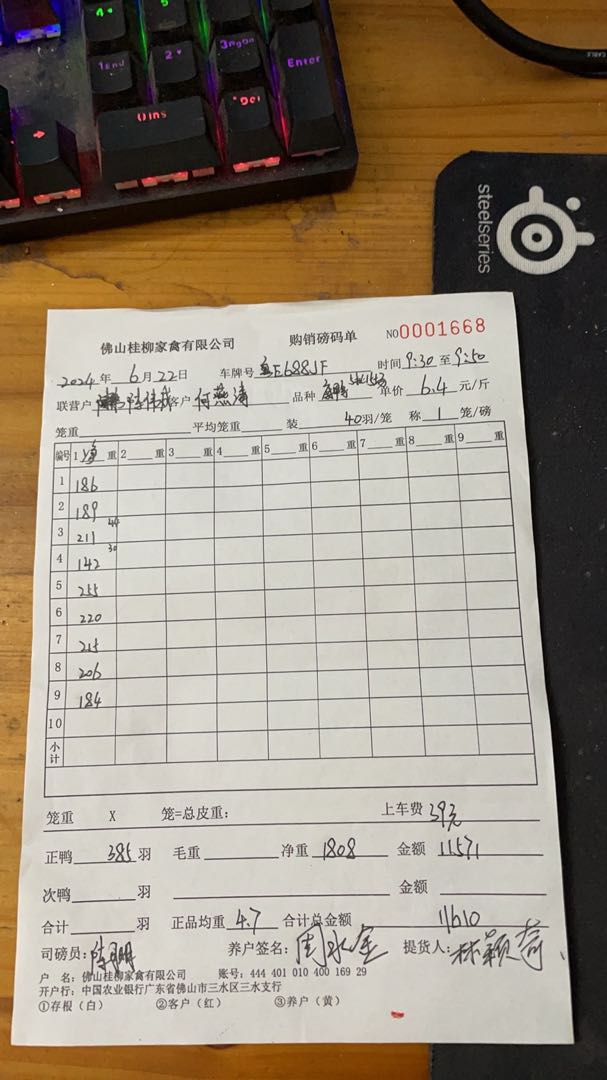 4
5
1End
2
3PgDn
Enter
0Ins
Del
CABLE
steelseries
佛山桂柳家禽有限公司 购销磅码单 NO0001668
2024年6月22日 车牌号 粤E688JF 时间 9:30 至 9:50
联营户 客户 何燕涛 品种 单价 6.4 元/斤
笼重 平均笼重 装 40羽/笼 称 1 笼/磅
编号 1 净 重 2 重 3 重 4 重 5 重 6 重 7 重 8 重 9 重
1 186
2 189
3 211 44
4 142 30
5 255
6 220
7 215
8 206
9 184
10
小计
笼重 X 笼=总皮重: 上车费 39元
正鸭 385 羽 毛重 净重 1808 金额 11571
次鸭 羽 金额
合计 羽 正品均重 4.7 合计总金额 11610
司磅员: 养户签名: 周永金 提货人: 林颖荷
户 名: 佛山桂柳家禽有限公司 账号: 444 401 010 400 169 29
开户行: 中国农业银行广东省佛山市三水区三水支行
①存根(白) ②客户(红) ③养户(黄)